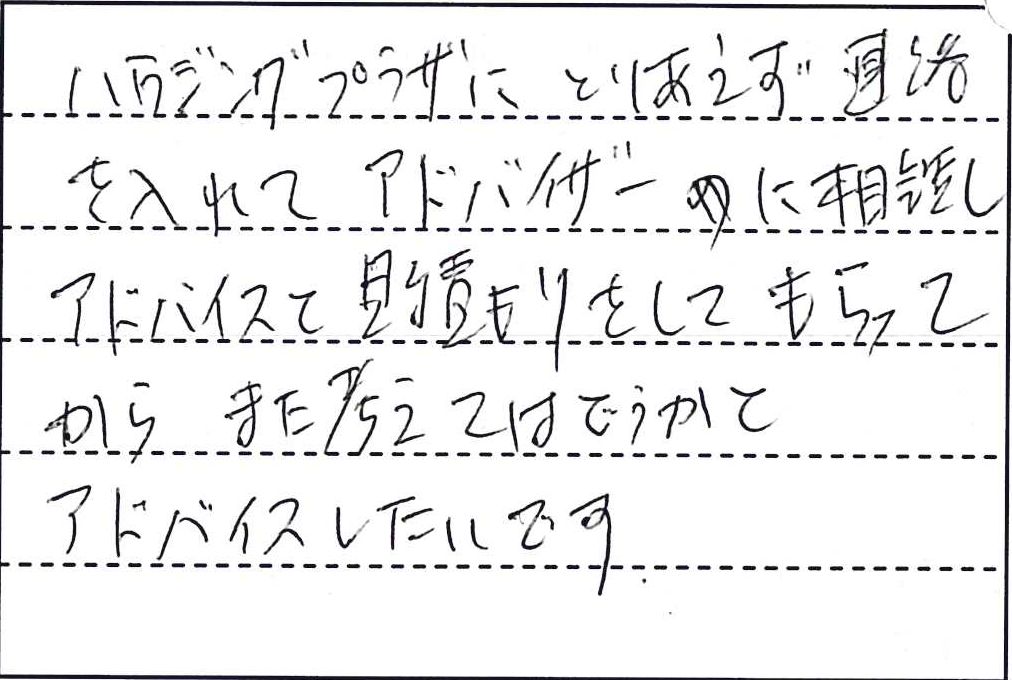 ハウジングプラザに とりあえず 連絡
を入れて アドバイザーのに相談し
アドバイスと見積もりをして もらって
から また考えてはどうかと
アドバイスしたいです.